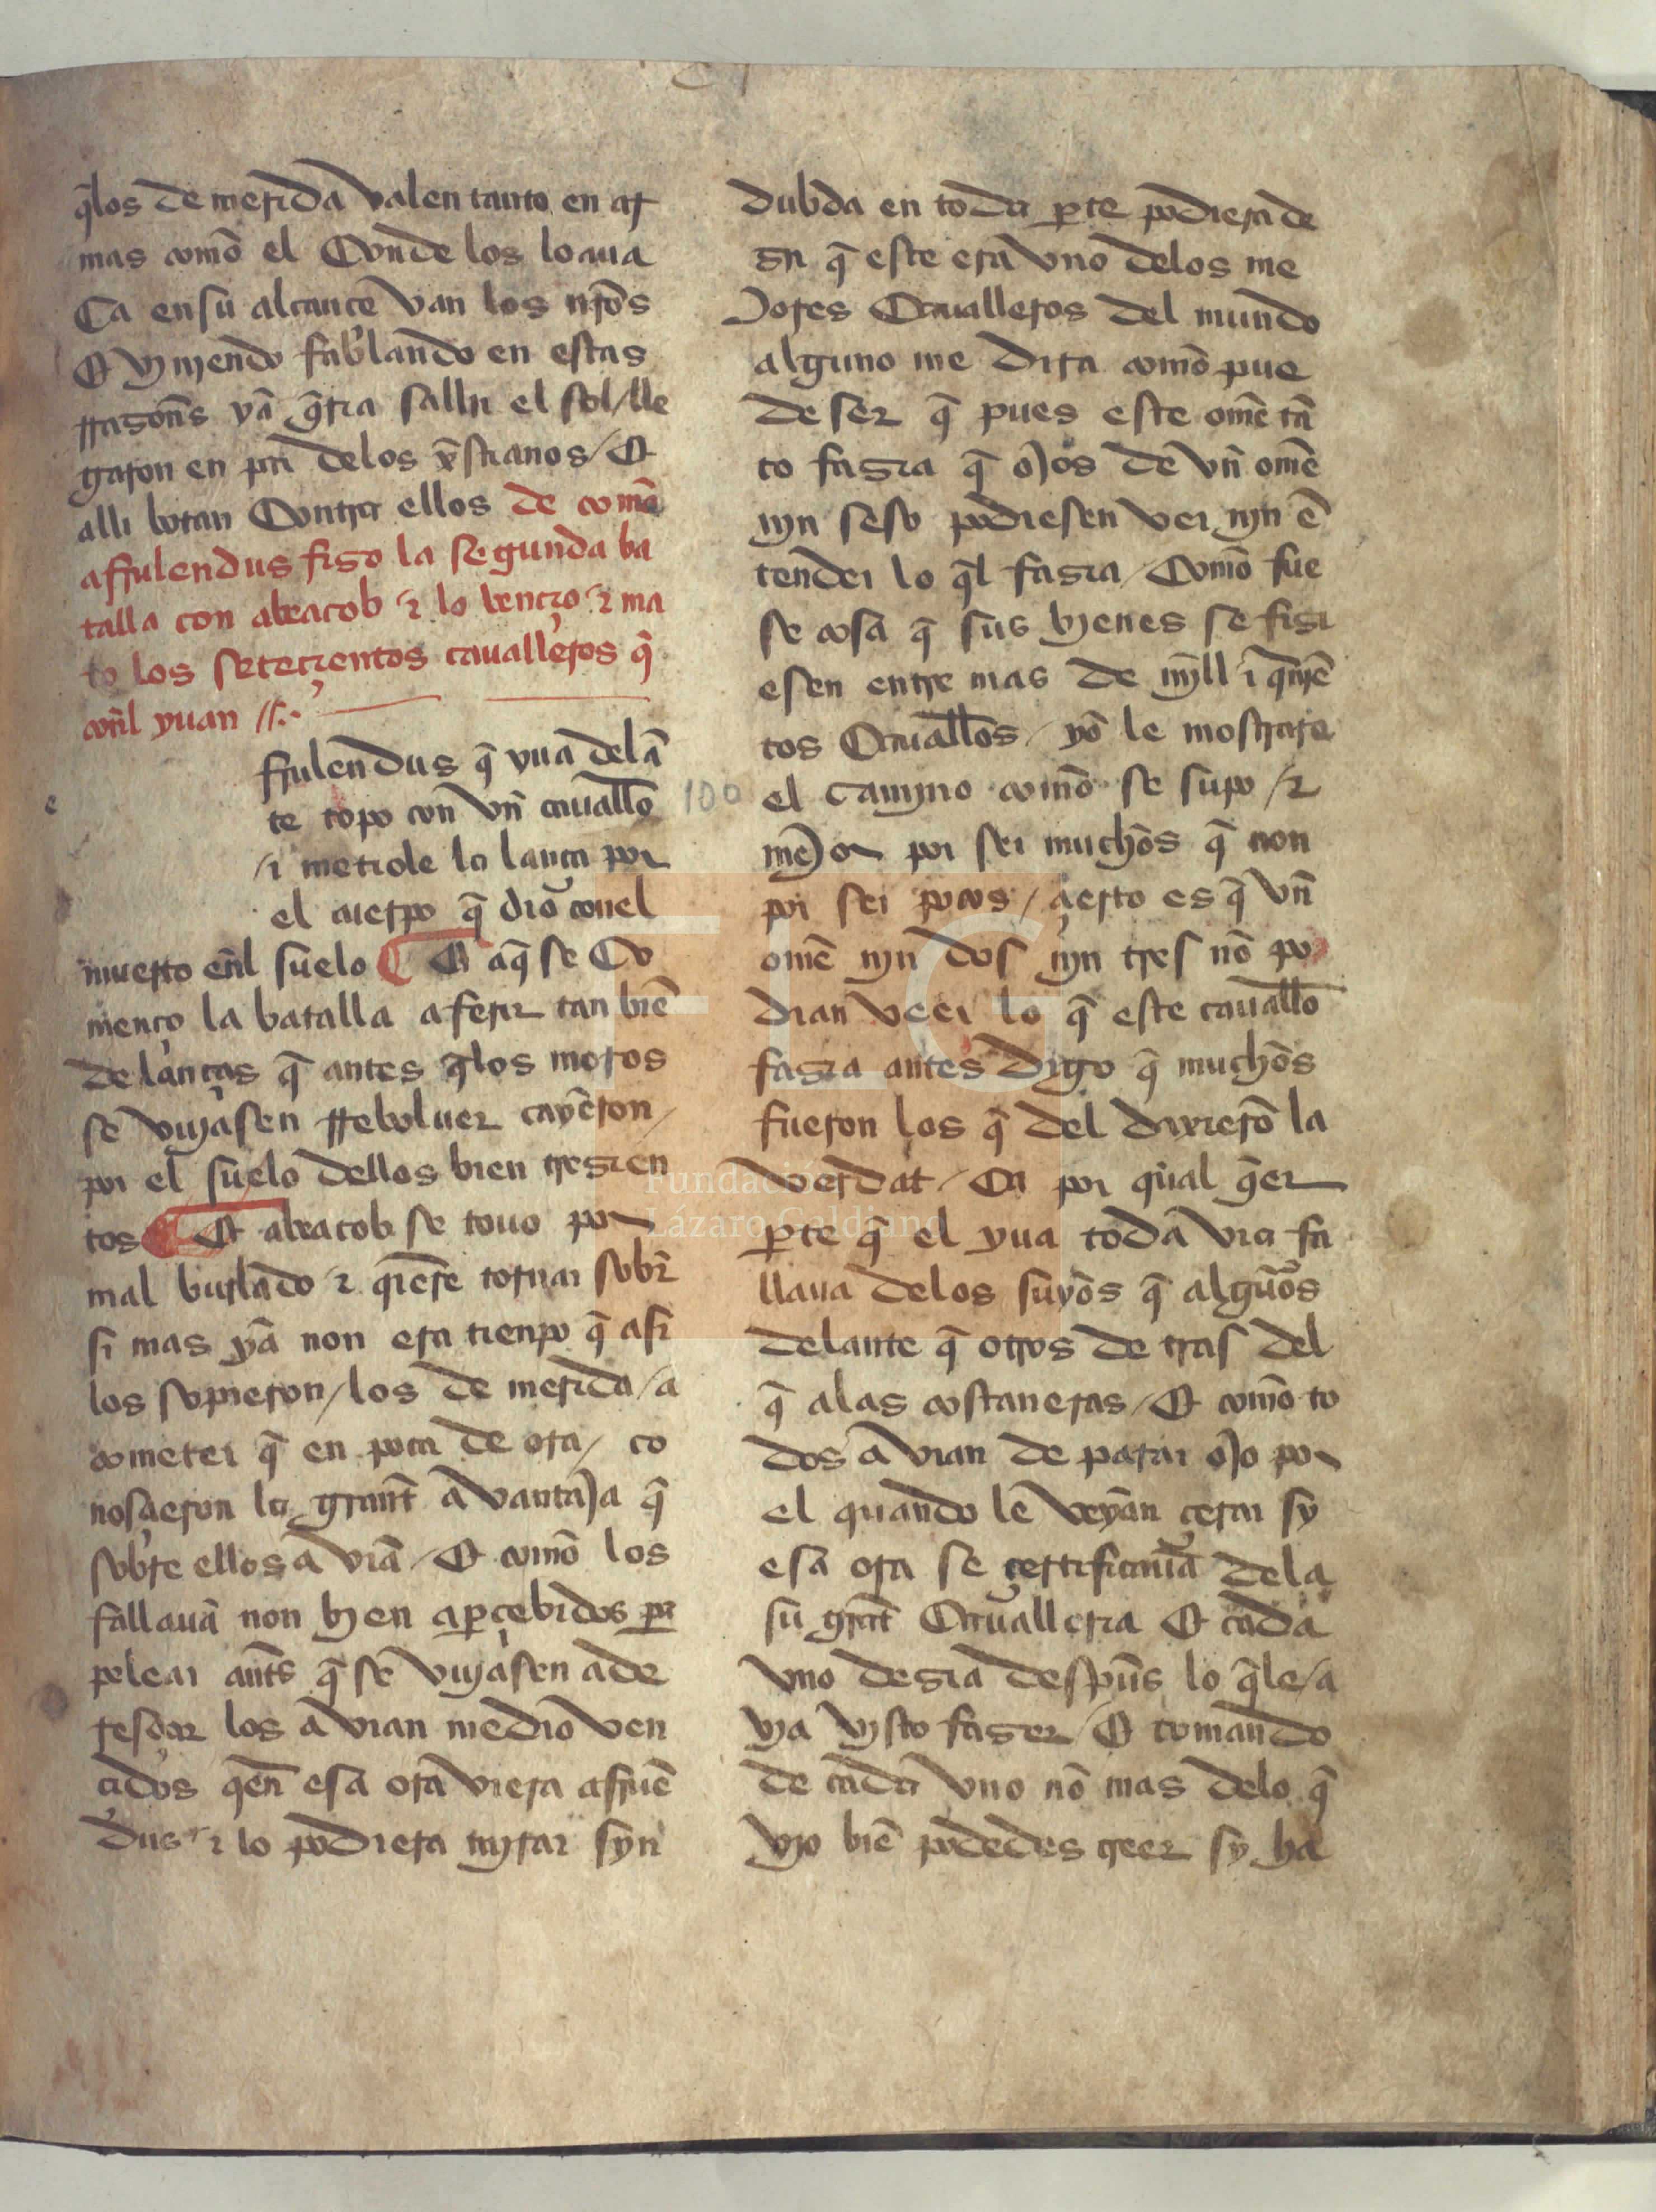 q̃los de merida valen tanto en ar
mas comō el Conde los loaua
Ca en su alcance van los nrōs
E vynyendo fablando en estas
rrasonēs yā q̃ria sallir el sol / lle
garon en par delos xp̃stianos / E
alli botan Contra ellos de comō
affrulendus fiso la segunda ba
talla con abeacob τ lo vençio τ ma
to los seteçientos caualleros q̃
conl̄ yuan //.
ffrulendus q̃ yua delā
te topo con vn̄ cauall̄o
/τ metiole la lança por
el cuerpo q̃ dio conel
muerto enl̄ suelo E aq̃ se Co
menço la batalla a ferir tan biē
de lanças q̃ antes q̃los moros
se vuyasen rreboluer cayeron /
por el suelo dellos bien tresien
tos E abeacob se touo por
mal burlado τ quiere tornar sobr̄
si mas yā non era tienpo q̃ asi
los sopieron / los de merida / a
cometer q̃ en poca de ora / co
nosçieron la grant̄ avantaja q̃
sobre ellos a viā / E comō los
fallauā non byen aperçebidos par
pelear ant̄s q̃ se vuyasen ade
resçar los a vian medio ven
cidos qen̄ esa ora viera afruē
dus τ lo podiera myrar syn
dubda en toda p̱te podiera de
sir q̃ este era vno delos me
Jores Caualleros del mundo
alguno me dira comō pue
de ser q̃ pues este omē tā
to fasia q̃ ojos de vn̄ omē
nyn seso podiesen ver nyn ē
tender lo q̃l fasia / Comō fue
se cosa q̃ sus byenes se fisi
esen entre mas de mȳll τ q̃nyē
tos Cauall̄os / yō le mostrare
el camyno comō se supo / τ
mējor por ser muchōs q̃ non
por ser pocos / çierto es q̃ vn̄
omē nyn dos nyn tres nō po
drian veer lo q̃ este cauall̄o
fasia antes digo q̃ muchōs
fueron los q̃ del dixierō la
verdat / Ca por qual q̃er
p̱te q̃ el yua toda via fa
llaua delos suyōs q̃ algūos
delante q̃ otros de tras del
q̃ alas costaneras / E comō to
dos a vian de parar ojo por
el quando le veyān çerar sy
esa ora se çertificauiā dela
su grāt Caualleria E cada
vno desia despūs lo q̃le / a
vya vysto faser / E tomando
de cada vno nō mas delo q̃
vyo biē podedes creer sy ha
100
FLG
Fundación
Lázaro Galdiano